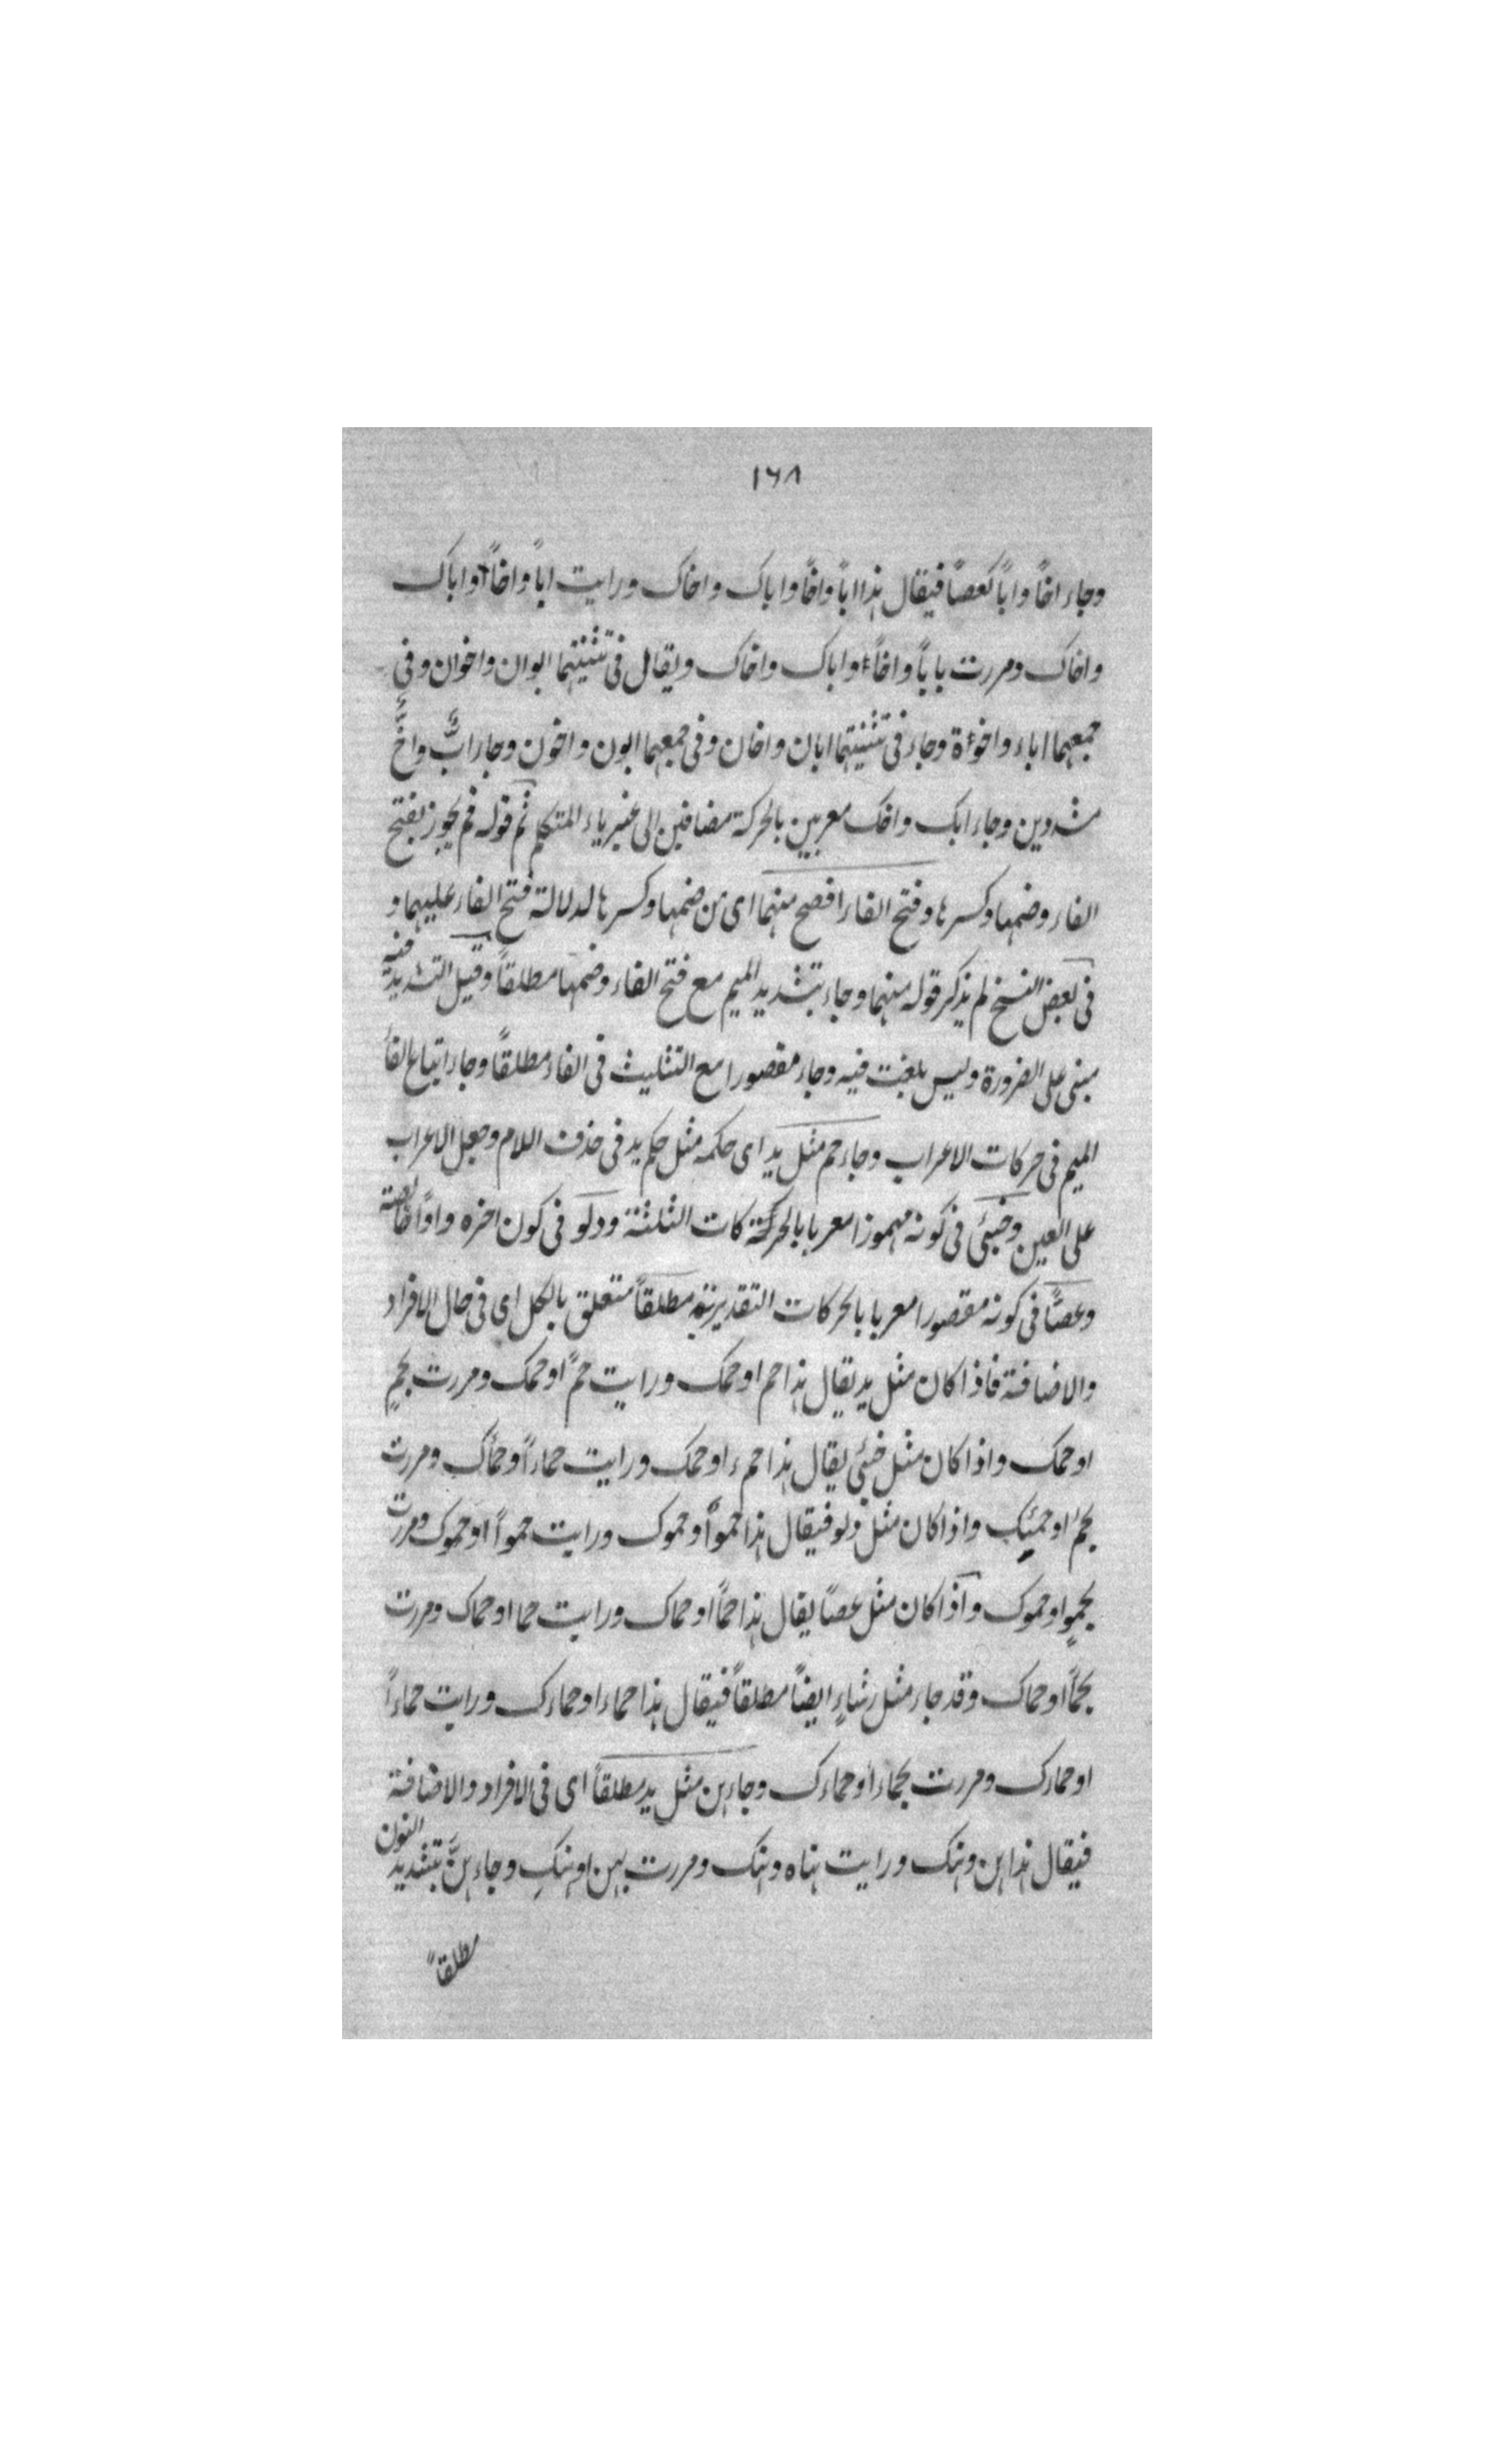 ١٦٨
وجاء اخًا وابًا كعصًا فيقال هذا ابًا واخًا واباك واخاك ورايت ابًا واخًا او اباك
واخاك ومررت بابًا واخًا او اباك واخاك ويقال فى تثنيتهما ابوان واخوان وفى
جمعهما اباء واخوة وجاء فى تثنيتهما ابان واخان وفى جمعهما ابون واخون وجاء ابٌّ واخٌّ
مشددين وجاء ابك واخك معربين بالحركة مضافين الى غير ياء المتكلم ثم قوله فم يجوز بفتح
الفاء وضمها وكسرها وفتح الفاء افصح منهما اى من ضمها وكسرها لدلالة فتح الفاء عليهما و
فى بعض النسخ لم يذكر قوله منهما وجاء بتشديد الميم مع فتح الفاء وضمها مطلقاً وقيل التشديد فيه
مبنى على الضرورة وليس بلغت فيه وجاء مقصورا مع التثليث فى الفاء مطلقاً وجاء اتباع الفاء
الميم فى حركات الاعراب وجاء حم مثل يد اى حكمه مثل حكم يد فى حذف اللام وجعل الاعراب
على العين وخبئى فى كونه مهموزا معربا بالحركات الثلثة ودلو فى كون اخره واوًا
وعصًا فى كونه مقصورا معربا بالحركات التقديرية مطلقاً متعلق بالكل اى فى حال الافراد
والاضافة فاذا كان مثل يد يقال هذا حم او حمك ورايت حمًا او حمك ومررت بحمٍ
او حمك واذا كان مثل خبئى يقال هذا حمء او حمك ورايت حماءً او حمأك ومررت
بحمء او حمئك واذا كان مثل دلو فيقال هذا حموٌ او حموك ورايت حمواً او حموك ومررت
بحموٍ او حموك واذا كان مثل عصًا يقال هذا حمًا او حماك ورايت حما او حماك ومررت
بحمًا او حماك وقد جاء مثل رشاءٍ ايضاً مطلقاً فيقال هذا حماء او حماءك ورايت حماءاً
او حماءك ومررت بحماء او حماءك وجاء هن مثل يد مطلقاً اى فى الافراد والاضافة
فيقال هذا هن وهنك ورايت هناه وهنك ومررت بهن او هنكِ وجاء هنٌّ بتشديد النون
مطلقاً